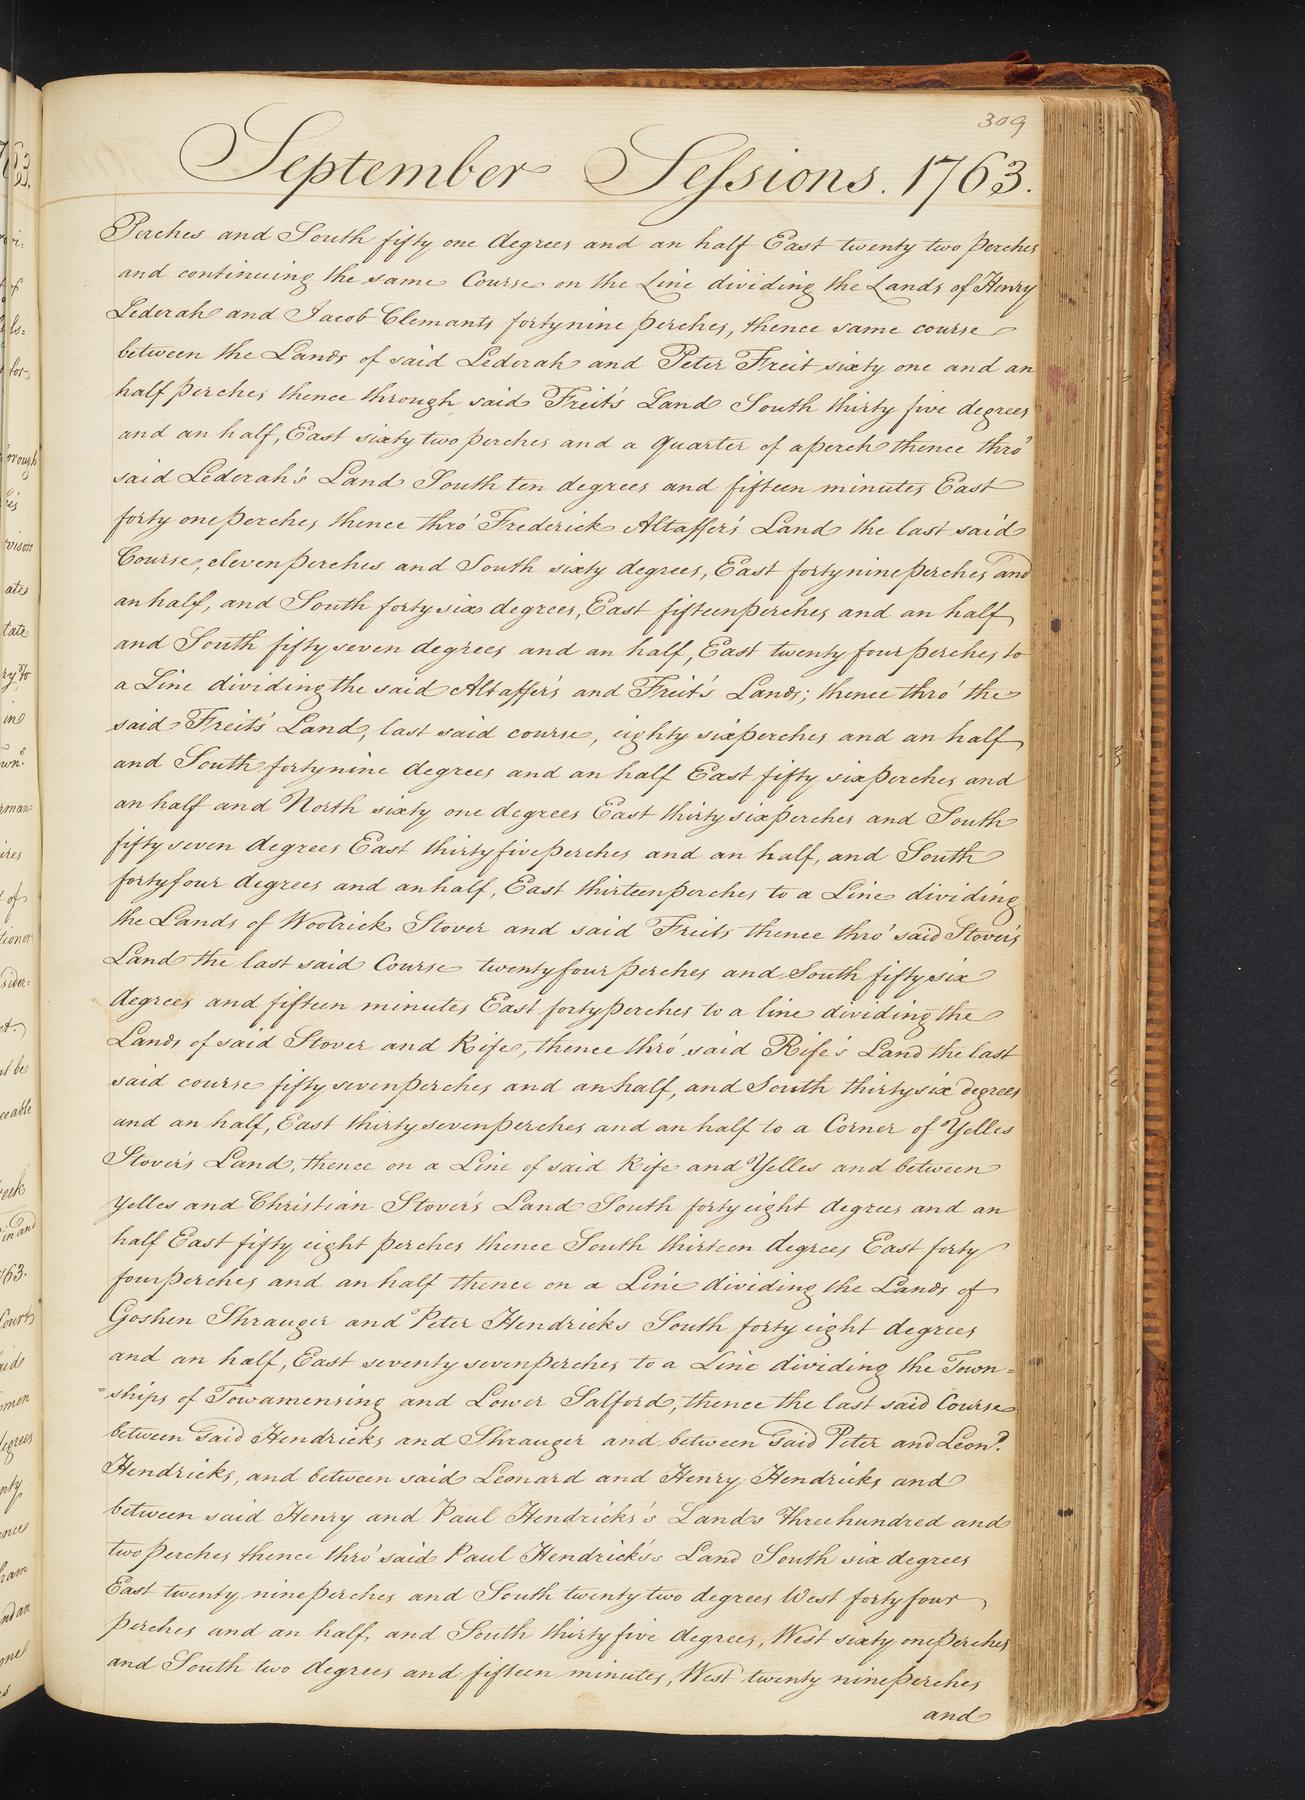 309
September Sessions. 1763.
Perches and South fifty one degrees and an half East twenty two perches
and continuing the same Course on the Line dividing the Lands of Henry
Lederah and Jacob Clemants forty nine perches, thence same course
between the Lands of said Lederah and Peter Freit sixty one and an
half perches thence through said Freit's Land South thirty five degrees
and an half, East sixty two perches and a quarter of a perch thence thro'
said Lederah's Land South ten degrees and fifteen minutes East
forty one perches thence thro' Frederick Altaffer's Land the last said
Course, eleven perches and South sixty degrees, East forty nine perches and
an half, and South forty six degrees, East fifteen perches and an half
and South fifty seven degrees and an half, East twenty four perches to
a Line dividing the said Altaffer's and Freit's Lands; thence thro' the
said Freits' Land, last said course, eighty six perches and an half
and South forty nine degrees and an half East fifty six perches and
an half and North sixty one degrees East thirty six perches and South
fifty seven degrees East thirty five perches and an half, and South
forty four degrees and an half, East thirteen perches to a Line dividing
the Lands of Woolrick Stover and said Freits thence thro' said Stover's
Land the last said Course twenty four perches and South fifty six
degrees and fifteen minutes East forty perches to a line dividing the
Lands of said Stover and Rife, thence thro' said Rife's Land the last
said course fifty seven perches and an half, and South thirty six degrees
and an half, East thirty seven perches and an half to a Corner of Yelles
Stover's Land, thence on a Line of said Rife and Yelles and between
Yelles and Christian Stover's Land South forty eight degrees and an
half East fifty eight perches thence South thirteen degrees East forty
four perches and an half thence on a Line dividing the Lands of
Goshen Shrauger and Peter Hendricks South forty eight degrees
and an half, East seventy seven perches to a Line dividing the Town=
=ships of Towamensing and Lower Salford, thence the last said Course
between said Hendricks and Shrauger and between said Peter and Leond.
Hendricks, and between said Leonard and Henry Hendricks and
between said Henry and Paul Hendricks's Lands three hundred and
two perches thence thro' said Paul Hendrick's Land South six degrees
East twenty nine perches and South twenty two degrees West forty four
perches and an half, and South thirty five degrees, West sixty one perches
and South two degrees and fifteen minutes, West twenty nine perches
and